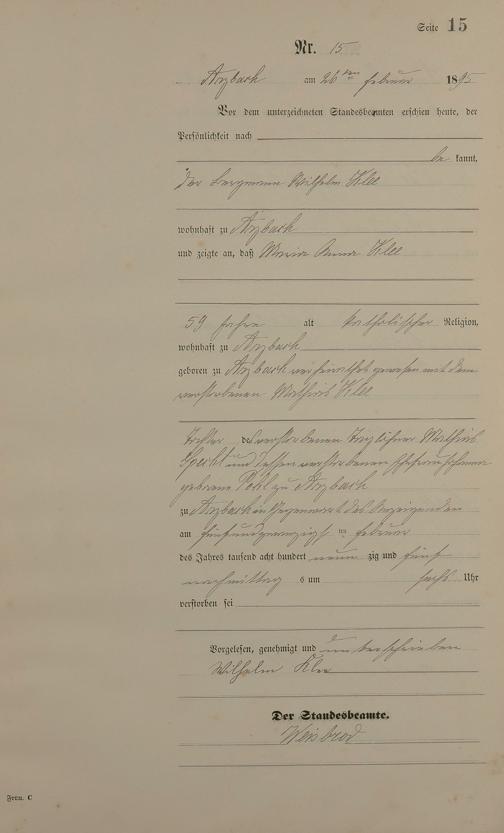 Seite 15
Nr. 15
Arzbach am 26ten Februar 1895
Vor dem unterzeichneten Standesbeamten erschien heute, der
Persönlichkeit nach
be kannt,
der Bergmann Wilhelm Klee
wohnhaft zu Arzbach
und zeigte an, daß Maria Anna Klee
59 Jahre alt katholischer Religion,
wohnhaft zu Arzbach
geboren zu Arzbach verheirathet gewesen mit dem
verstorbenen Mathias Klee
Tochter des verstorbenen Taglöhner Mathias
Specht und dessen verstorbenen Ehefrau
geborene Pohl zu Arzbach
zu Arzbach in Gegenwart des Anzeigenden
am fünfundzwanzigsten Februar
des Jahres tausend acht hundert neun zig und fünf
nachmittag s um sechs Uhr
verstorben sei
Vorgelesen, genehmigt und unterschrieben
Wilhelm Klee
Der Standesbeamte.
Weisbrod
Form. C